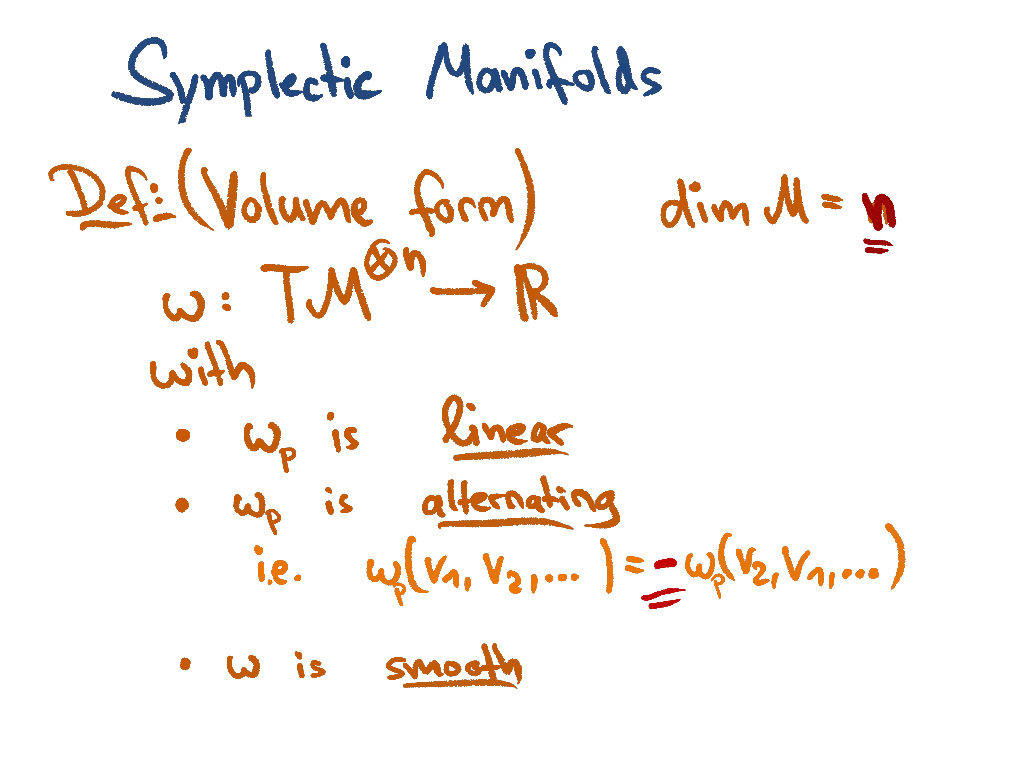 Symplectic Manifolds
Def: (Volume form) dim M = n
ω: TM^⊗n → ℝ
with
• ωₚ is linear
• ωₚ is alternating
i.e. ωₚ(v₁, v₂, ...) = -ωₚ(v₂, v₁, ...)
• ω is smooth